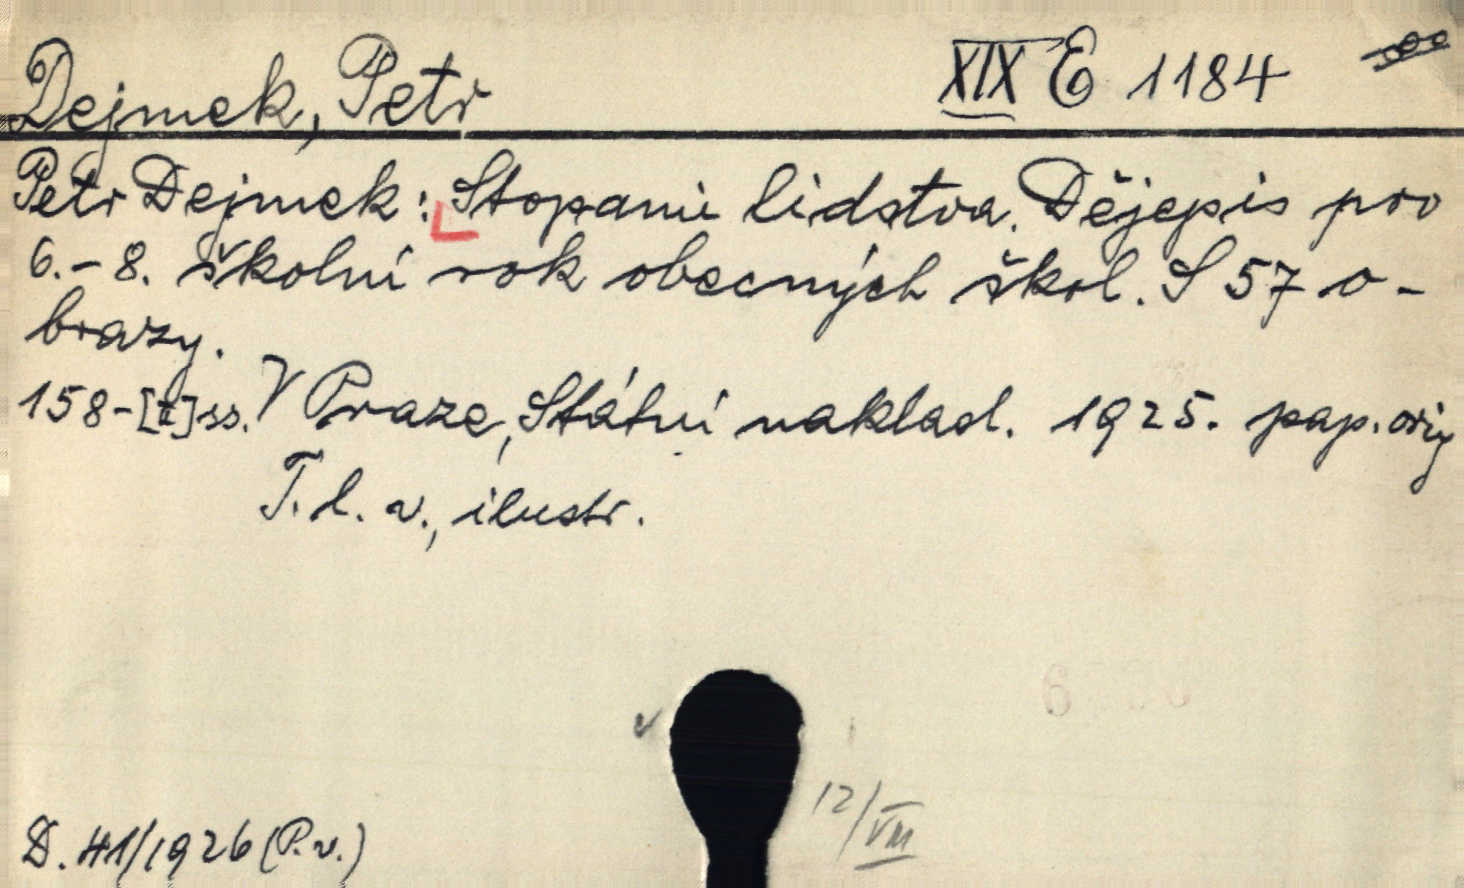 Dejmek, Petr XIX E 1184
Petr Dejmek: Stopami lidstva. Dějepis pro
6.-8. školní rok obecných škol. S 57 o-
brazy.
158-[II] ss. V Praze, Státní naklad. 1925. pap. orig
T. l. v., ilustr.
12/VIII
D. 41/1926 (P. v.)